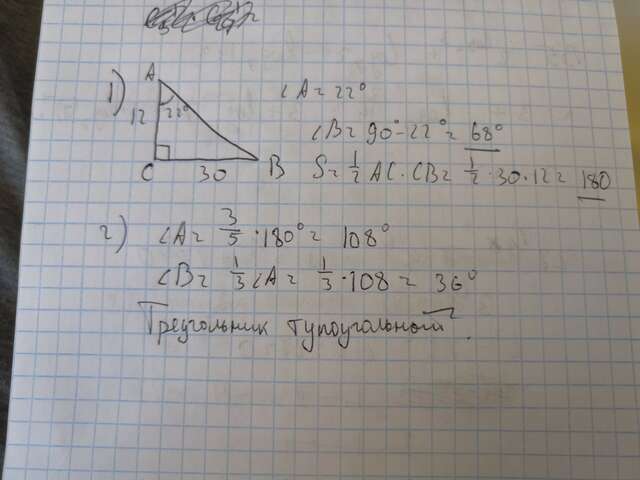 1)
A
12
22°
C
30
B
∠A = 22°
∠B = 90° - 22° = 68°
S = 1/2 AC · CB = 1/2 · 30 · 12 = 180
2) ∠A = 3/5 · 180° = 108°
∠B = 1/3 ∠A = 1/3 · 108 = 36°
Треугольник тупоугольный.